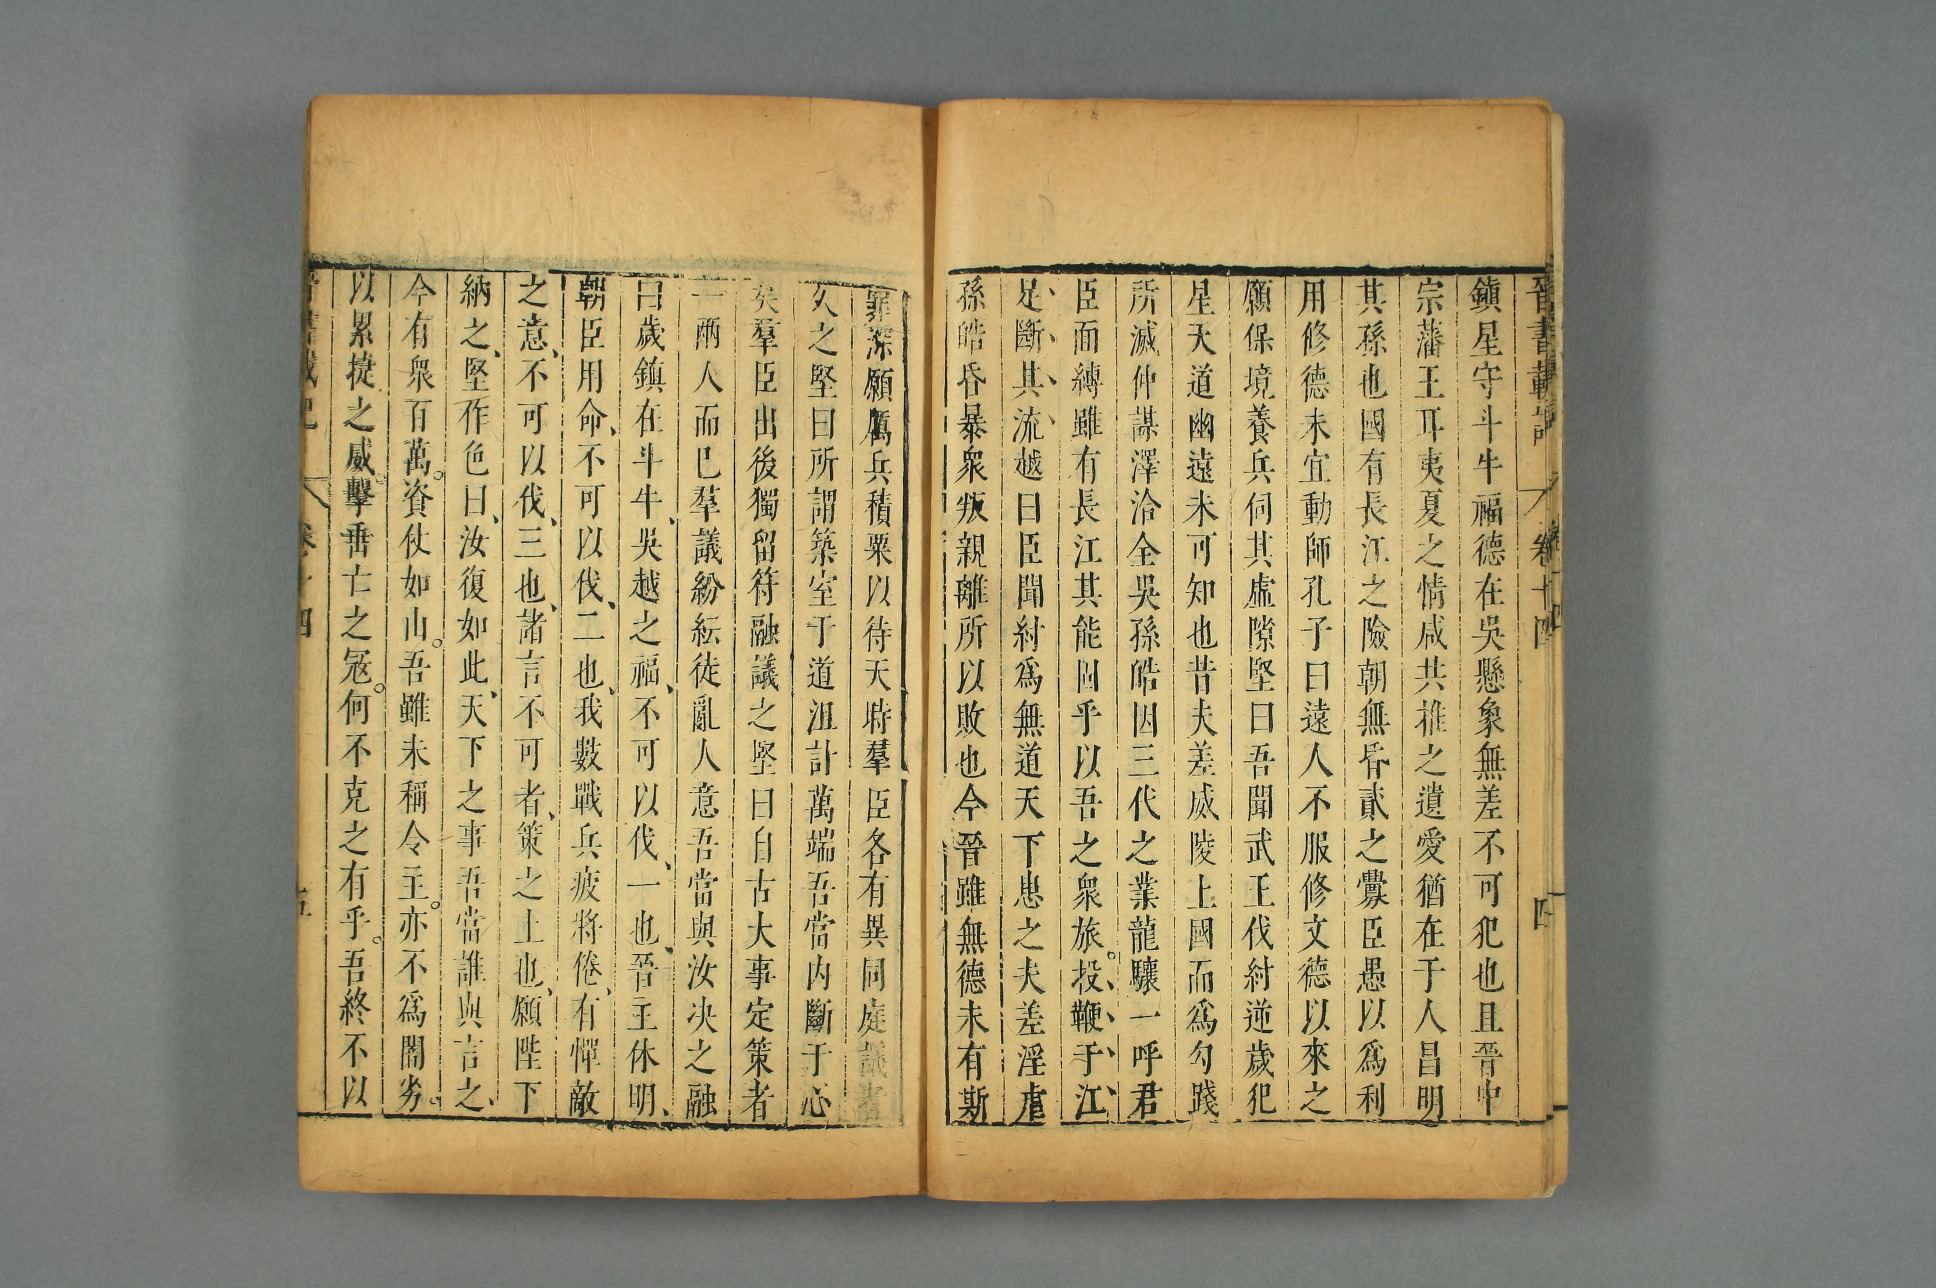 晉書載記 卷十四 四
鎮星守斗牛福德在吳懸象無差不可犯也且晉中
宗藩王耳夷夏之情咸共推之遺愛猶在于人昌明
其孫也國有長江之險朝無昏貳之釁臣愚以爲利
用修德未宜動師孔子曰遠人不服修文德以來之
願保境養兵伺其虛隙堅曰吾聞武王伐紂逆歲犯
星天道幽遠未可知也昔夫差威陵上國而爲勾踐
所滅仲謀澤洽全吳孫皓因三代之業龍驤一呼君
臣面縛雖有長江其能固乎以吾之衆旅。投、鞭、于、江、
足、斷、其、流、越曰臣聞紂爲無道天下患之夫差淫虐
孫皓昏暴衆叛親離所以敗也今晉雖無德未有斯
罪深願厲兵積粟以待天時羣臣各有異同庭議者
久之堅曰所謂築室于道沮計萬端吾當內斷于心
矣羣臣出後獨留苻融議之堅曰自古大事定策者
一兩人而已羣議紛紜徒亂人意吾當與汝决之融
曰歲鎮在斗牛、吳越之福、不可以伐、一也、晉主休明、
朝臣用命、不可以伐、二也、我數戰兵疲將倦、有憚敵
之意、不可以伐、三也、諸言不可者、策之上也、願陛下
納之、堅作色曰、汝復如此、天下之事吾當誰與言之、
今有衆百萬。資仗如山。吾雖未稱令主。亦不爲闇劣。
以累捷之威。擊垂亡之寇。何不克之有乎。吾終不以
晉書載記 卷十四 五